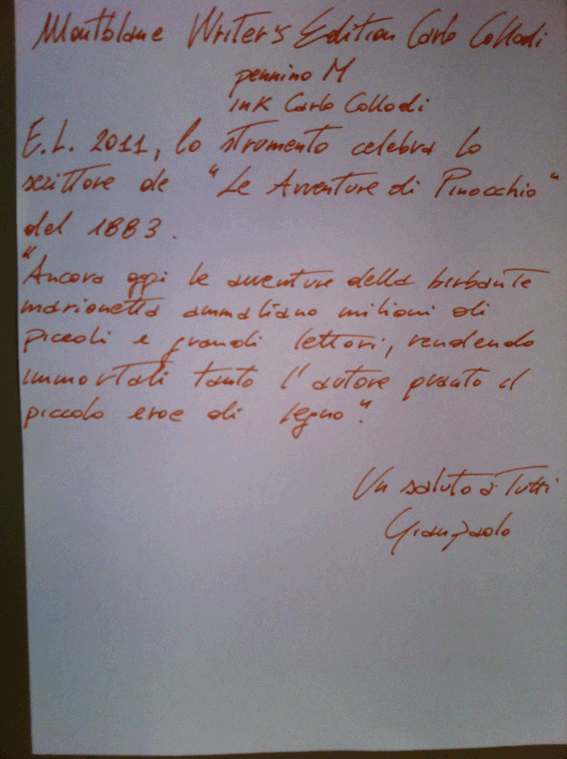 Montblanc Writer's Edition Carlo Collodi
pennino M
ink Carlo Collodi
E.L. 2011, lo strumento celebra lo
scrittore de "Le Avventure di Pinocchio"
del 1883.
"Ancora oggi le avventure della birbante
marionetta ammaliano milioni di
piccoli e grandi lettori, rendendo
immortali tanto l'autore quanto il
piccolo eroe di legno".
Un saluto a Tutti
Gianpaolo